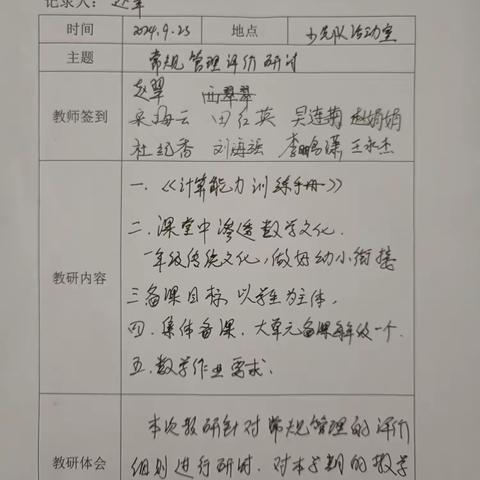 记录人：赵翠
时间 2024.9.25 地点 少先队活动室
主题 常规管理评价研讨
教师签到
赵翠
田红英 吴连菊 赵娟娟
杜纪香 刘海强 李鹏 王永杰
教研内容
一.《计算能力训练手册》
二.课堂中渗透数学文化.
一年级传统文化,做好幼小衔接
三备课目标,以学生为主体,
四.集体备课.大单元备课每年级一个.
五.数学作业要求.
教研体会
本次教研针对常规管理的评价
细则进行研讨.对本学期的教学